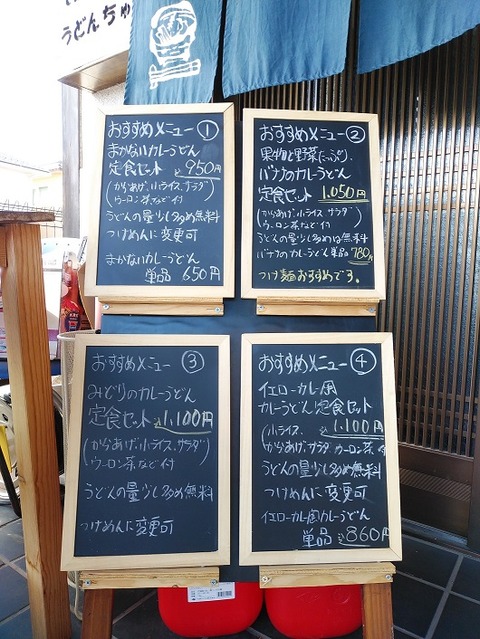 うどん
おすすめメニュー①
まかないカレーうどん
定食セット 950円
(からあげ、小ライス、サラダ
ウーロン茶など付)
うどんの量少し多め無料
つけめんに変更可
まかないカレーうどん
単品 650円
おすすめメニュー②
果物と野菜たっぷり
バナナのカレーうどん
定食セット 1,050円
(からあげ、小ライス、サラダ
ウーロン茶など付)
うどんの量少し多めは無料
バナナのカレーうどん単品780円
つけ麺おすすめです。
おすすめメニュー③
みどりのカレーうどん
定食セット 1,100円
(からあげ、小ライス、サラダ
ウーロン茶など付)
うどんの量少し多め無料
つけめんに変更可
おすすめメニュー④
イエローカレー風
カレーうどん定食セット
(小ライス、 1,100円
からあげ、サラダ、ウーロン茶付
うどんの量少し多め無料
つけめんに変更可
イエローカレー風カレーうどん
単品 860円